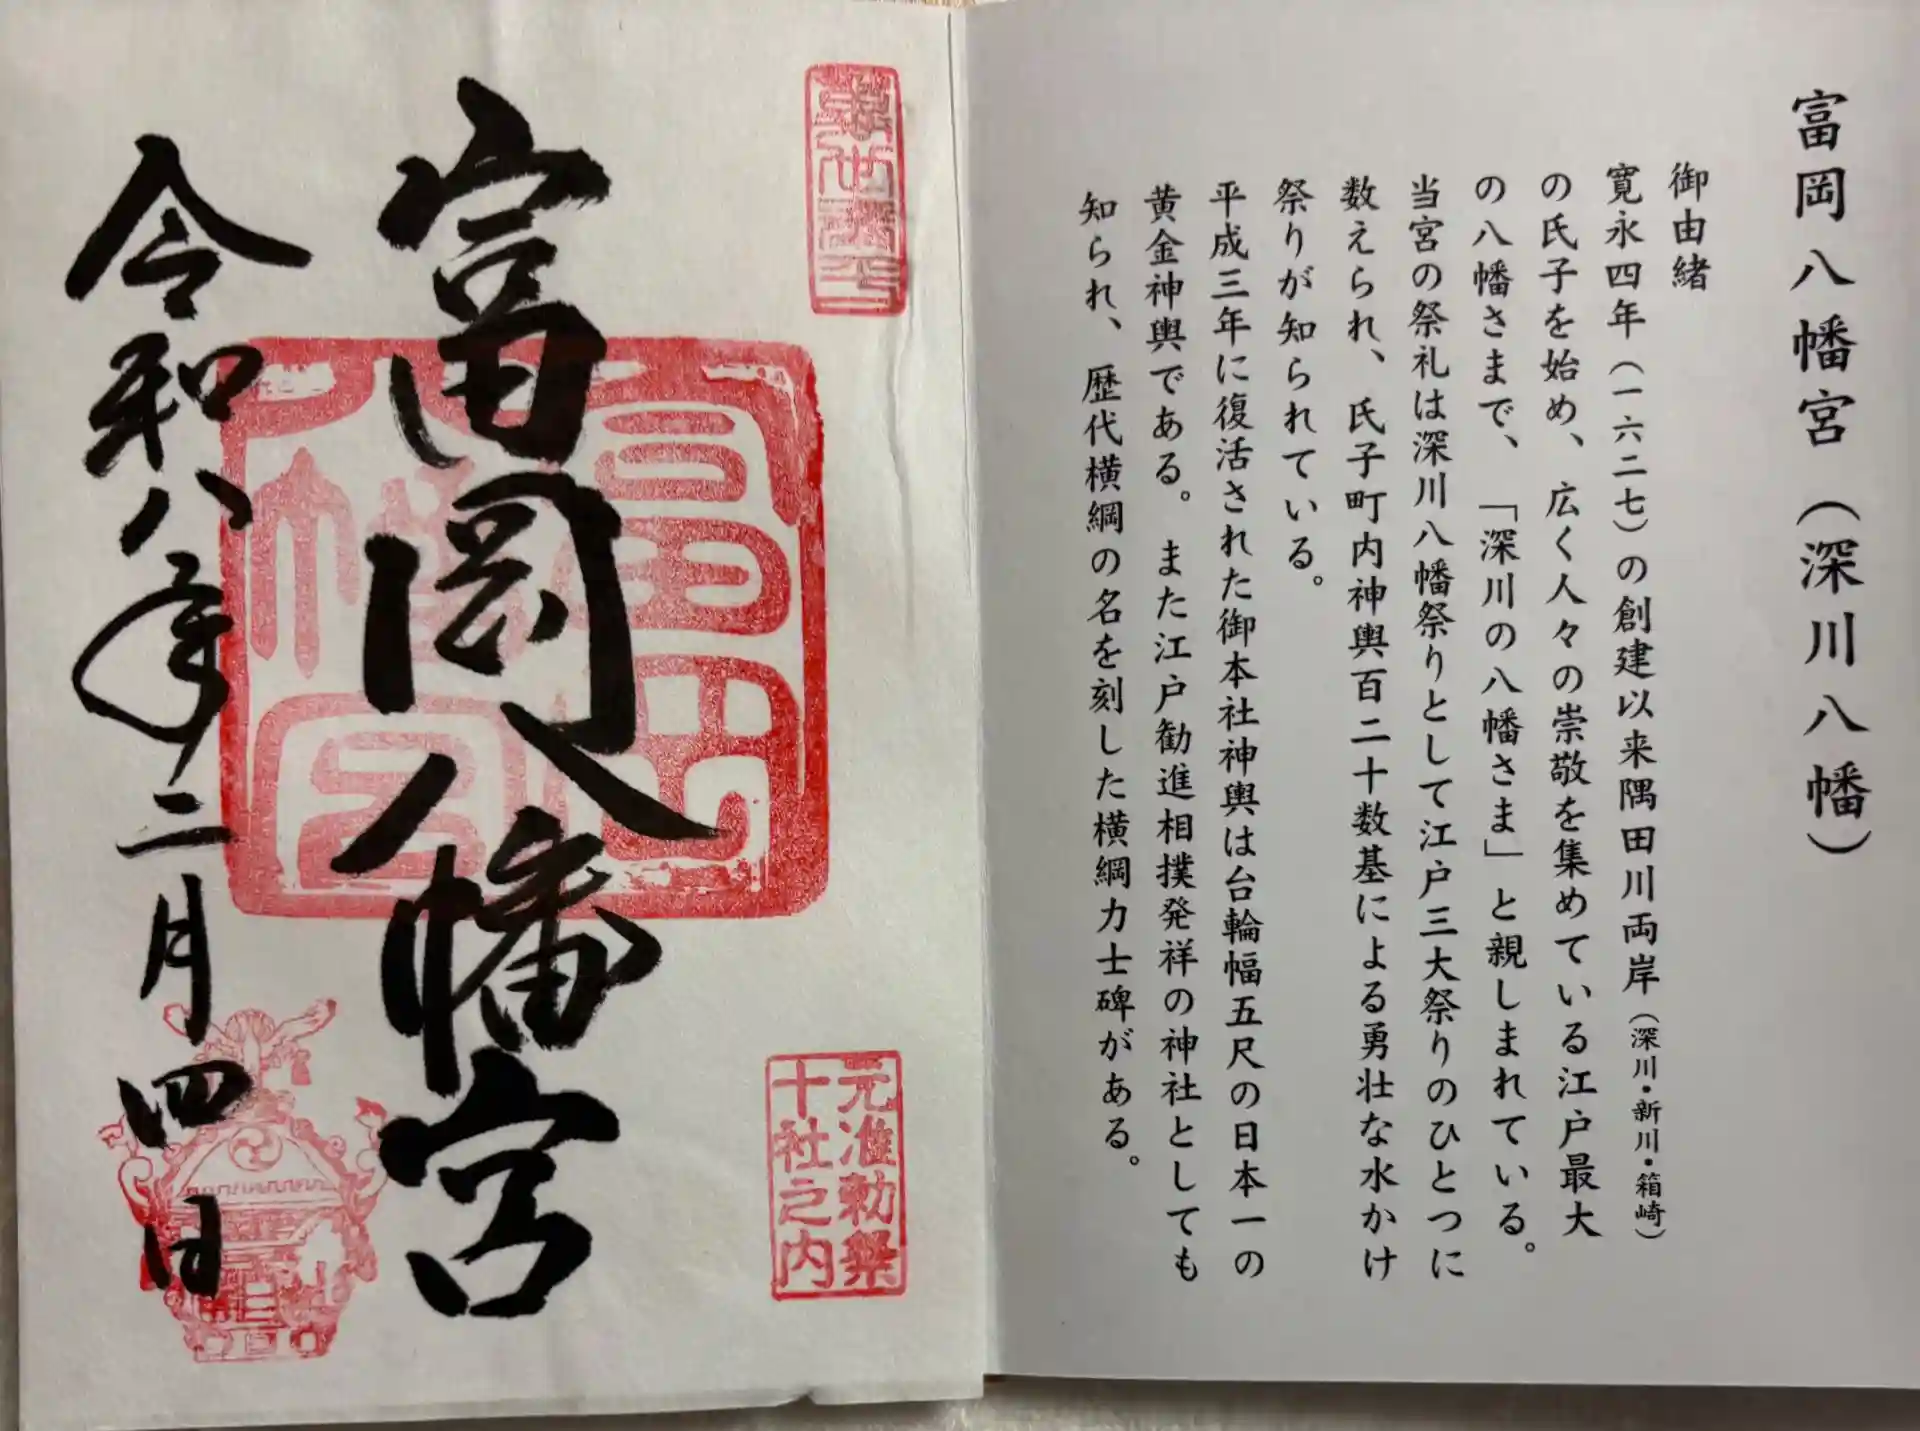 富岡八幡宮（深川八幡）
御由緒
寛永四年（一六二七）の創建以来隅田川両岸（深川・新川・箱崎）
の氏子を始め、広く人々の崇敬を集めている江戸最大
の八幡さまで、「深川の八幡さま」と親しまれている。
当宮の祭礼は深川八幡祭りとして江戸三大祭りのひとつに
数えられ、氏子町内神輿百二十数基による勇壮な水かけ
祭りが知られている。
平成三年に復活された御本社神輿は台輪幅五尺の日本一の
黄金神輿である。また江戸勧進相撲発祥の神社としても
知られ、歴代横綱の名を刻した横綱力士碑がある。
元准勅祭
十社之内
富岡八幡宮
富岡
八幡宮
令和八年二月四日